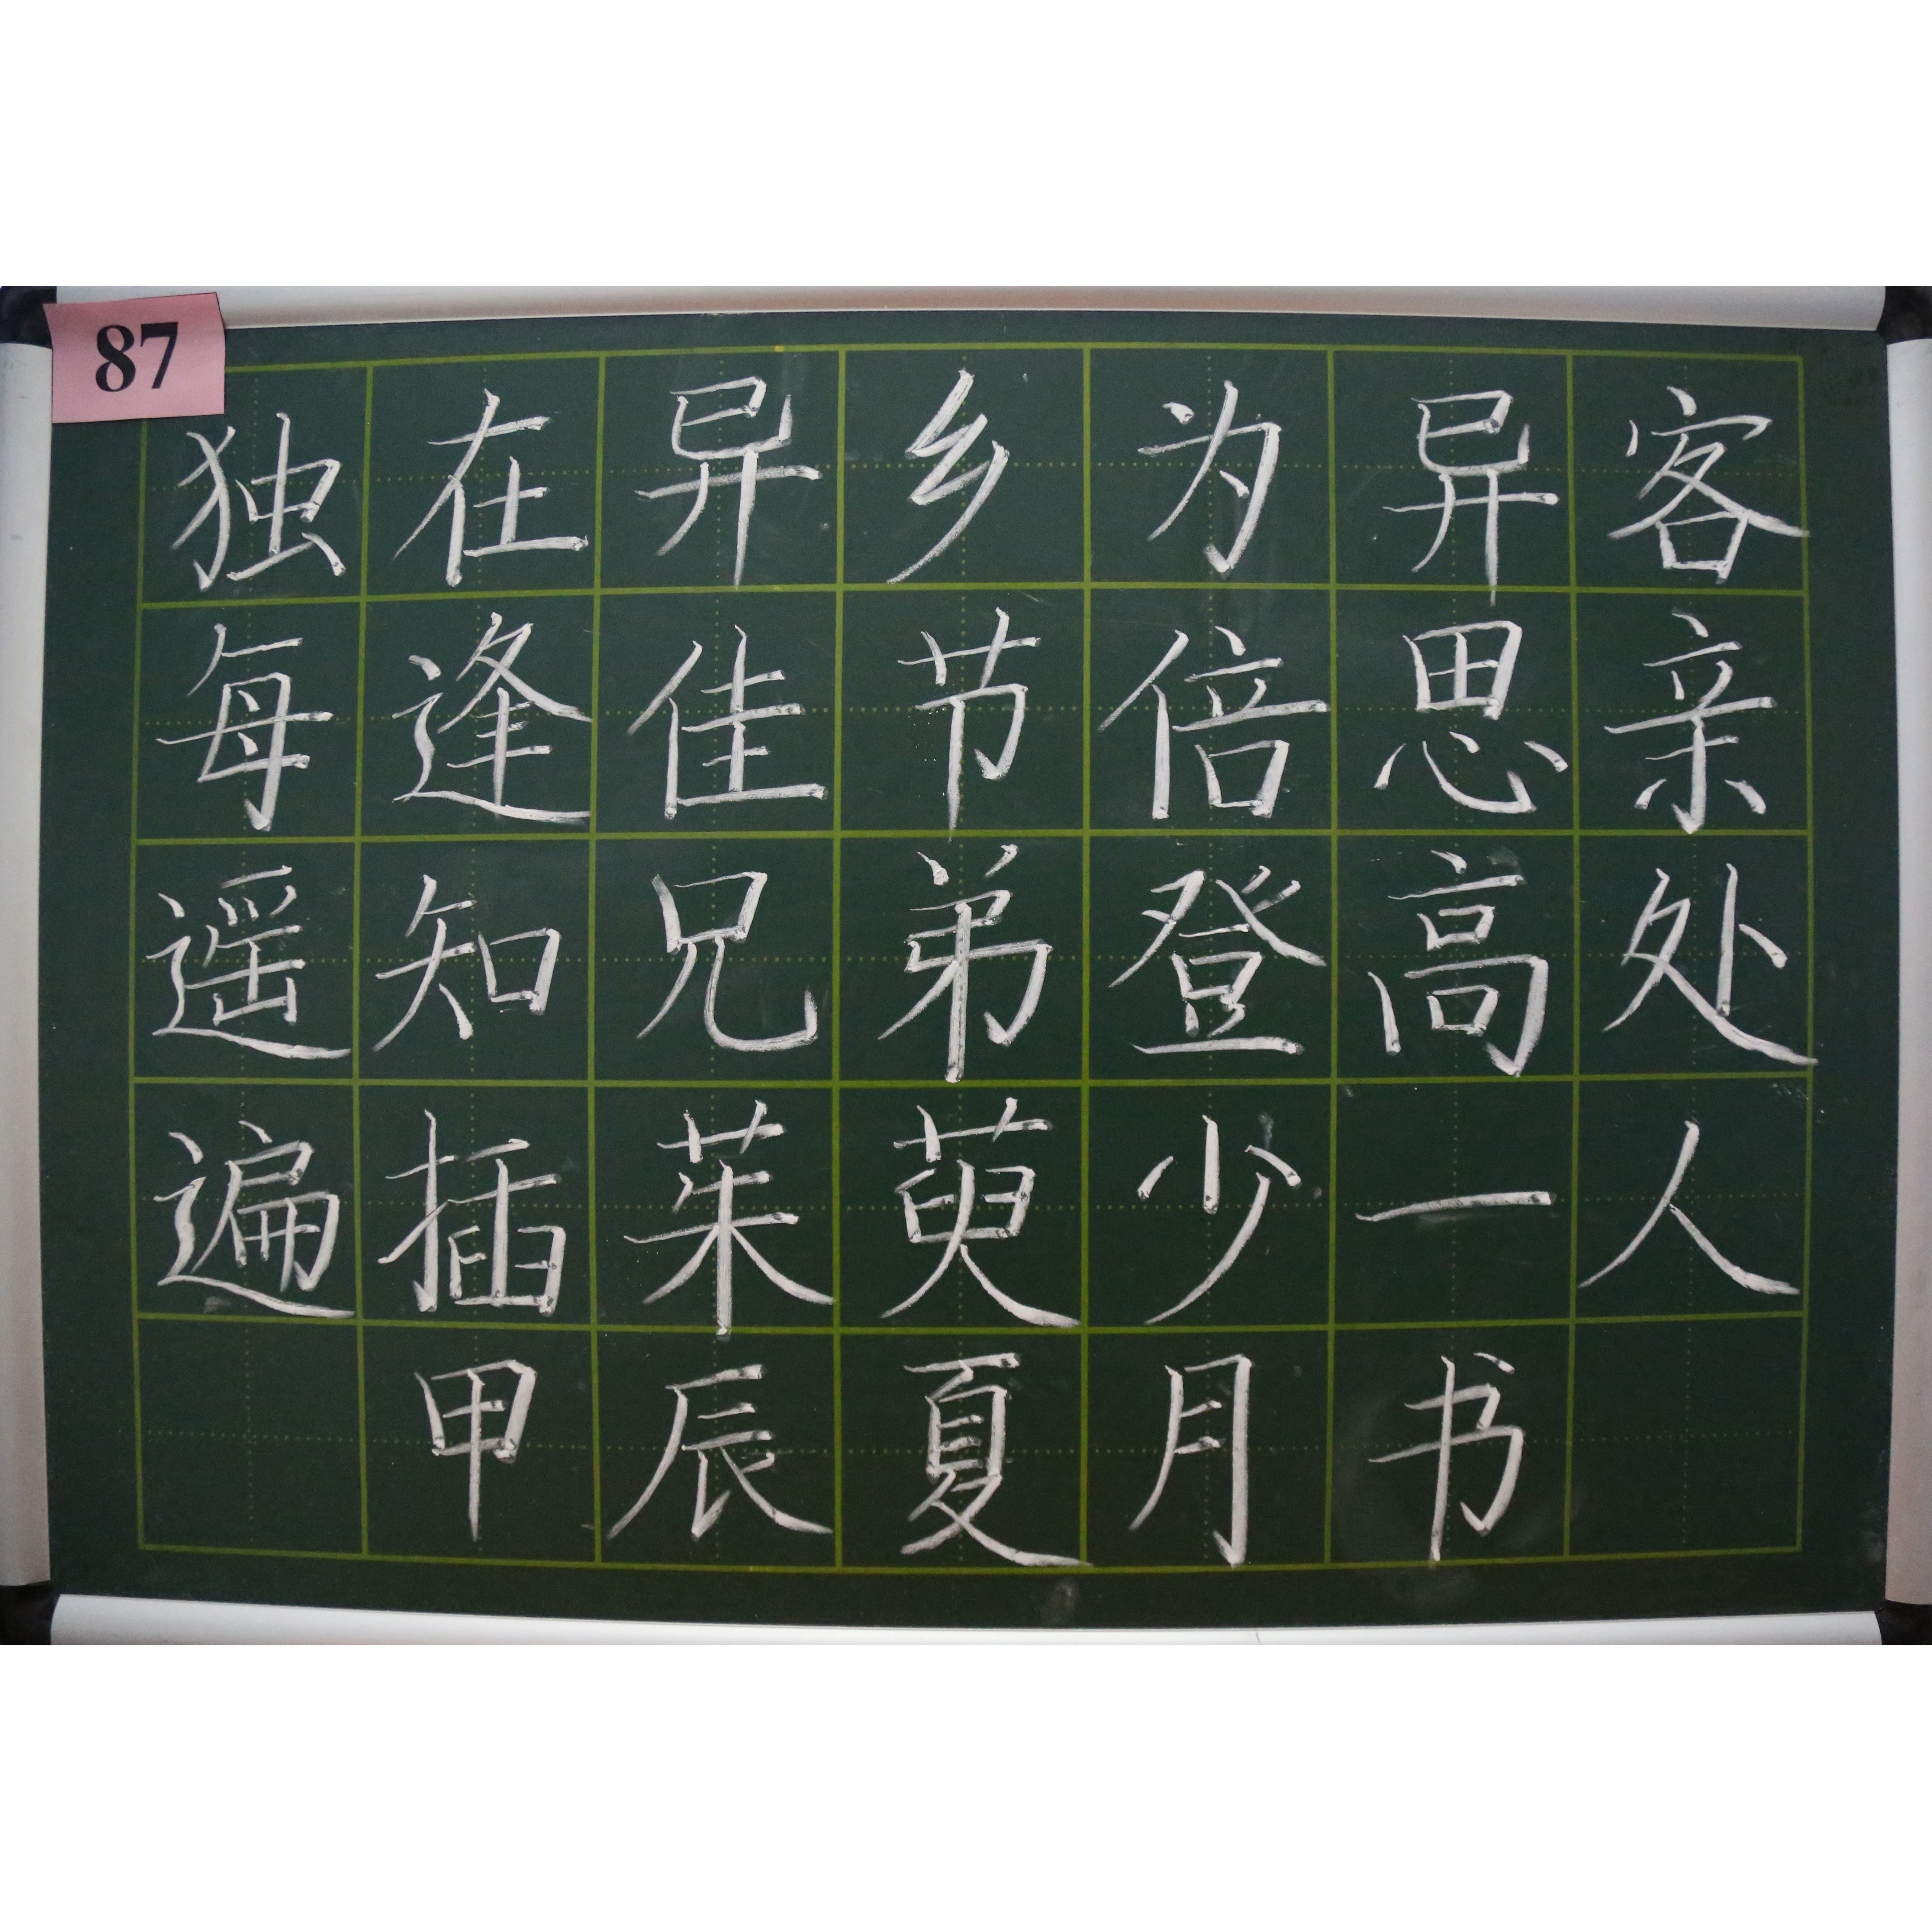 87
独在异乡为异客
每逢佳节倍思亲
遥知兄弟登高处
遍插茱萸少一人
甲辰夏月书